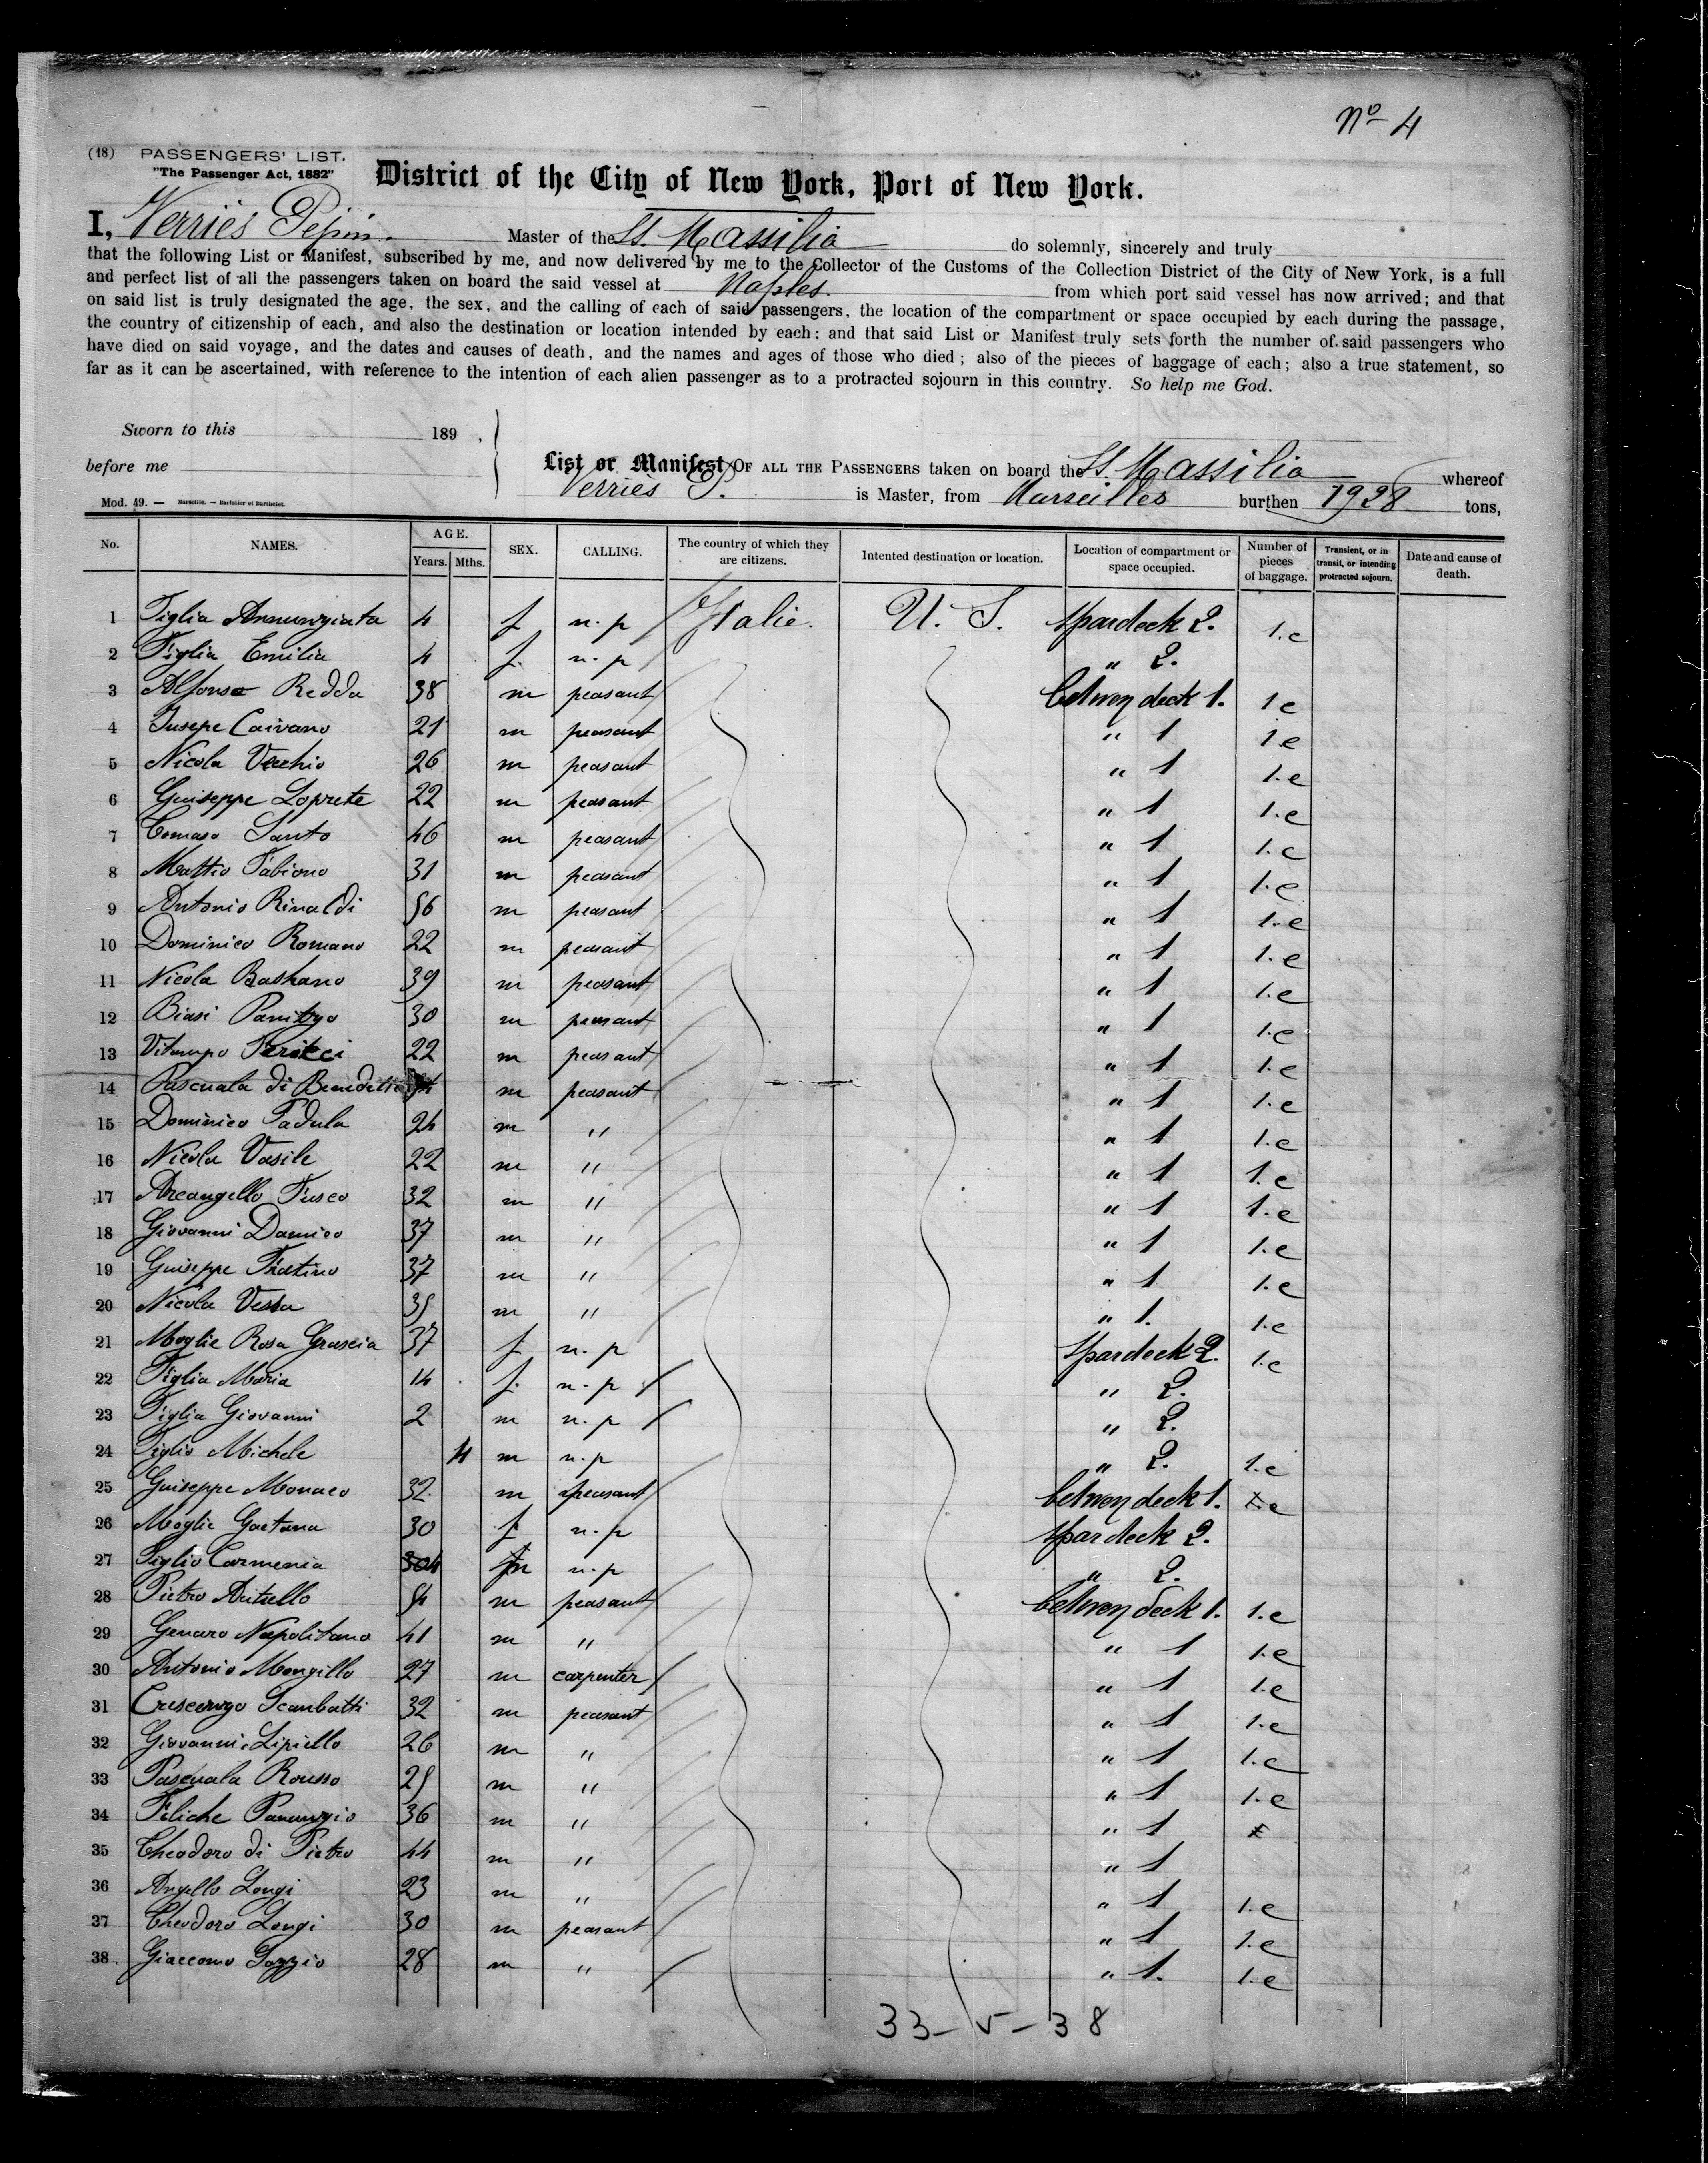 Nº 4
(18) PASSENGERS' LIST.
"The Passenger Act, 1882"
District of the City of New York, Port of New York.
I, Verriès Pépin. Master of the SS. Massilia do solemnly, sincerely and truly
that the following List or Manifest, subscribed by me, and now delivered by me to the Collector of the Customs of the Collection District of the City of New York, is a full
and perfect list of all the passengers taken on board the said vessel at Naples. from which port said vessel has now arrived; and that
on said list is truly designated the age, the sex, and the calling of each of said passengers, the location of the compartment or space occupied by each during the passage,
the country of citizenship of each, and also the destination or location intended by each: and that said List or Manifest truly sets forth the number of said passengers who
have died on said voyage, and the dates and causes of death, and the names and ages of those who died; also of the pieces of baggage of each; also a true statement, so
far as it can be ascertained, with reference to the intention of each alien passenger as to a protracted sojourn in this country. So help me God.
Sworn to this 189 ,
before me
List or Manifest OF ALL THE PASSENGERS taken on board the SS. Massilia whereof
Verriès P. is Master, from Marseilles burthen 1928 tons,
Mod. 49. — Marseille. — Barlatier et Barthelet.
No. NAMES. AGE. Years. Mths. SEX. CALLING. The country of which they are citizens. Intented destination or location. Location of compartment or space occupied. Number of pieces of baggage. Transient, or in transit, or intending protracted sojourn. Date and cause of death.
1 Figlia Annunziata 4 f n.p Italie. U.S. Spardeck 2. 1.c
2 Figlia Emilia 4 f. n.p " 2.
3 Alfonso Redda 38 m peasant betwen deck 1. 1 c
4 Jusepe Caivano 21 m peasant " 1 1 c
5 Nicola Vechio 26 m peasant " 1 1.c
6 Guiseppe Loprete 22 m peasant " 1 1.c
7 Tomaso Santo 46 m peasant " 1 1.c
8 Mattio Fabiono 31 m peasant " 1 1.c
9 Antonio Rinaldi 56 m peasant " 1 1.c
10 Dominico Romano 22 m peasant " 1 1.c
11 Nicola 39 m peasant " 1 1.c
12 Biasi 30 m peasant " 1 1.c
13 22 m peasant " 1 1.c
14 Pascuala di Benedetti m peasant " 1 1.c
15 Dominico Padula 24 m " " 1 1.c
16 Nicola Vasile 22 m " " 1 1.c
17 Arcangello Fusco 32 m " " 1 1.c
18 Giovanni Damico 37 m " " 1 1.c
19 Guiseppe Fratino 37 m " " 1 1.c
20 Nicola 35 m " " 1. 1.c
21 Moglie Rosa Grascia 37 f n.p Spardeck 2. 1.c
22 Figlia Maria 14 f. n.p " 2.
23 Figlia Giovanni 2 m n.p " 2.
24 Figlio Michele 4 m n.p " 2. 1.c
25 Guiseppe Monaco 32 m peasant betwen deck 1. c
26 Moglie Gaetana 30 f n.p Spardeck 2.
27 Figlio Carmenia m n.p " 2.
28 Pietro 54 m peasant betwen deck 1. 1.c
29 Genaro Napolitano 41 m " " 1 1.c
30 Antonio Mongillo 27 m carpenter " 1 1.c
31 Crescenzo Scanbatti 32 m peasant " 1 1.c
32 Giovanni Lipiello 26 m " " 1 1.c
33 Pascuala Rousso 25 m " " 1 1.c
34 Feliche Panunzio 36 m " " 1
35 Theodoro di Pietro 44 m " " 1
36 Angello Longi 23 m " " 1 1.c
37 Theodoro Longi 30 m peasant " 1 1.c
38 Giaccomo 28 m " " 1. 1.c
33 – 5 – 38